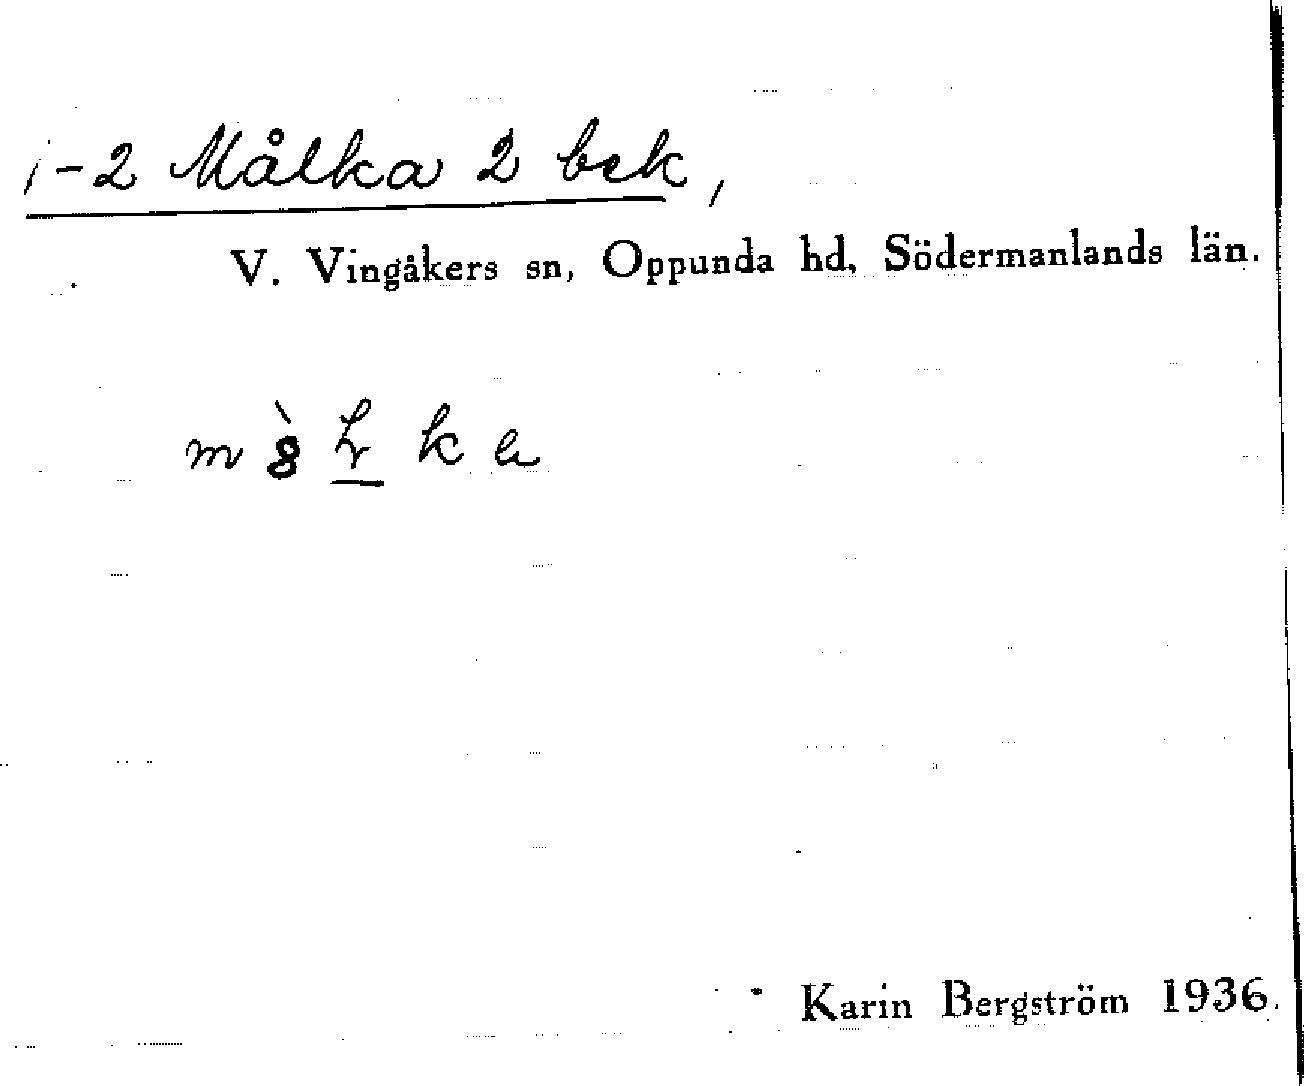 1-2 Målka 2 bek,
V. Vingåkers sn, Oppunda hd, Södermanlands län.
Karin Bergström 1936.